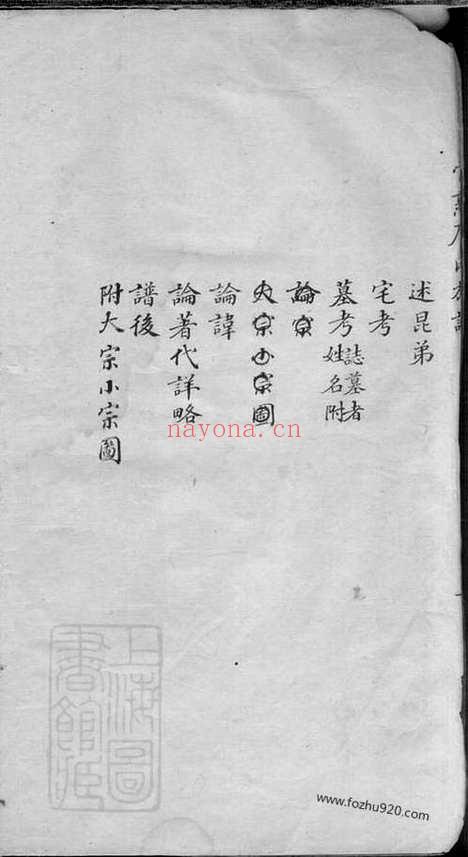 述昆弟
宅考
墓考 誌墓者姓名附
論宗
大宗小宗圖
論諱
論著代詳略
譜後
附大宗小宗圖
上海圖書館藏
nayona.cn
www.fozhu920.com